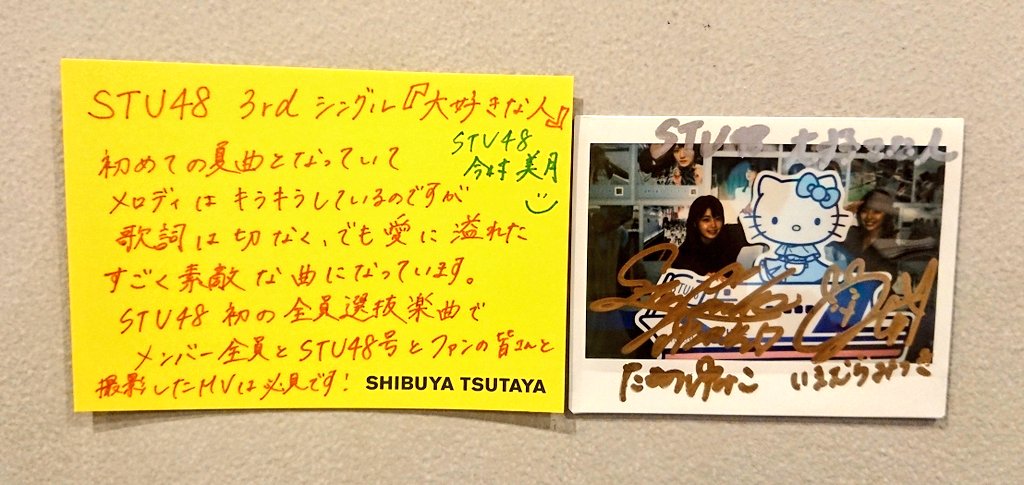 STU48 3rd シングル『大好きな人』
STU48
今村美月
初めての夏曲となっていて
メロディはキラキラしているのですが
歌詞は切なく、でも愛に溢れた
すごく素敵な曲になっています。
STU48初の全員選抜楽曲で
メンバー全員とSTU48号とファンの皆さんと
撮影したMVは必見です!
SHIBUYA TSUTAYA
STU48 大好きな人
いまむらみつき